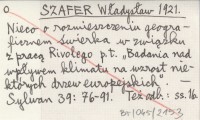 O SZAFER Władysław 1921.
Nieco o rozmieszczeniu geogra-
ficznem świerka w związku
z pracą Rivolego p.t. "Badania nad
wpływem klimatu na wzrost nie-
których drzew europejskich" —
Sylwan 39: 76-91. Też odb.: ss. 16.